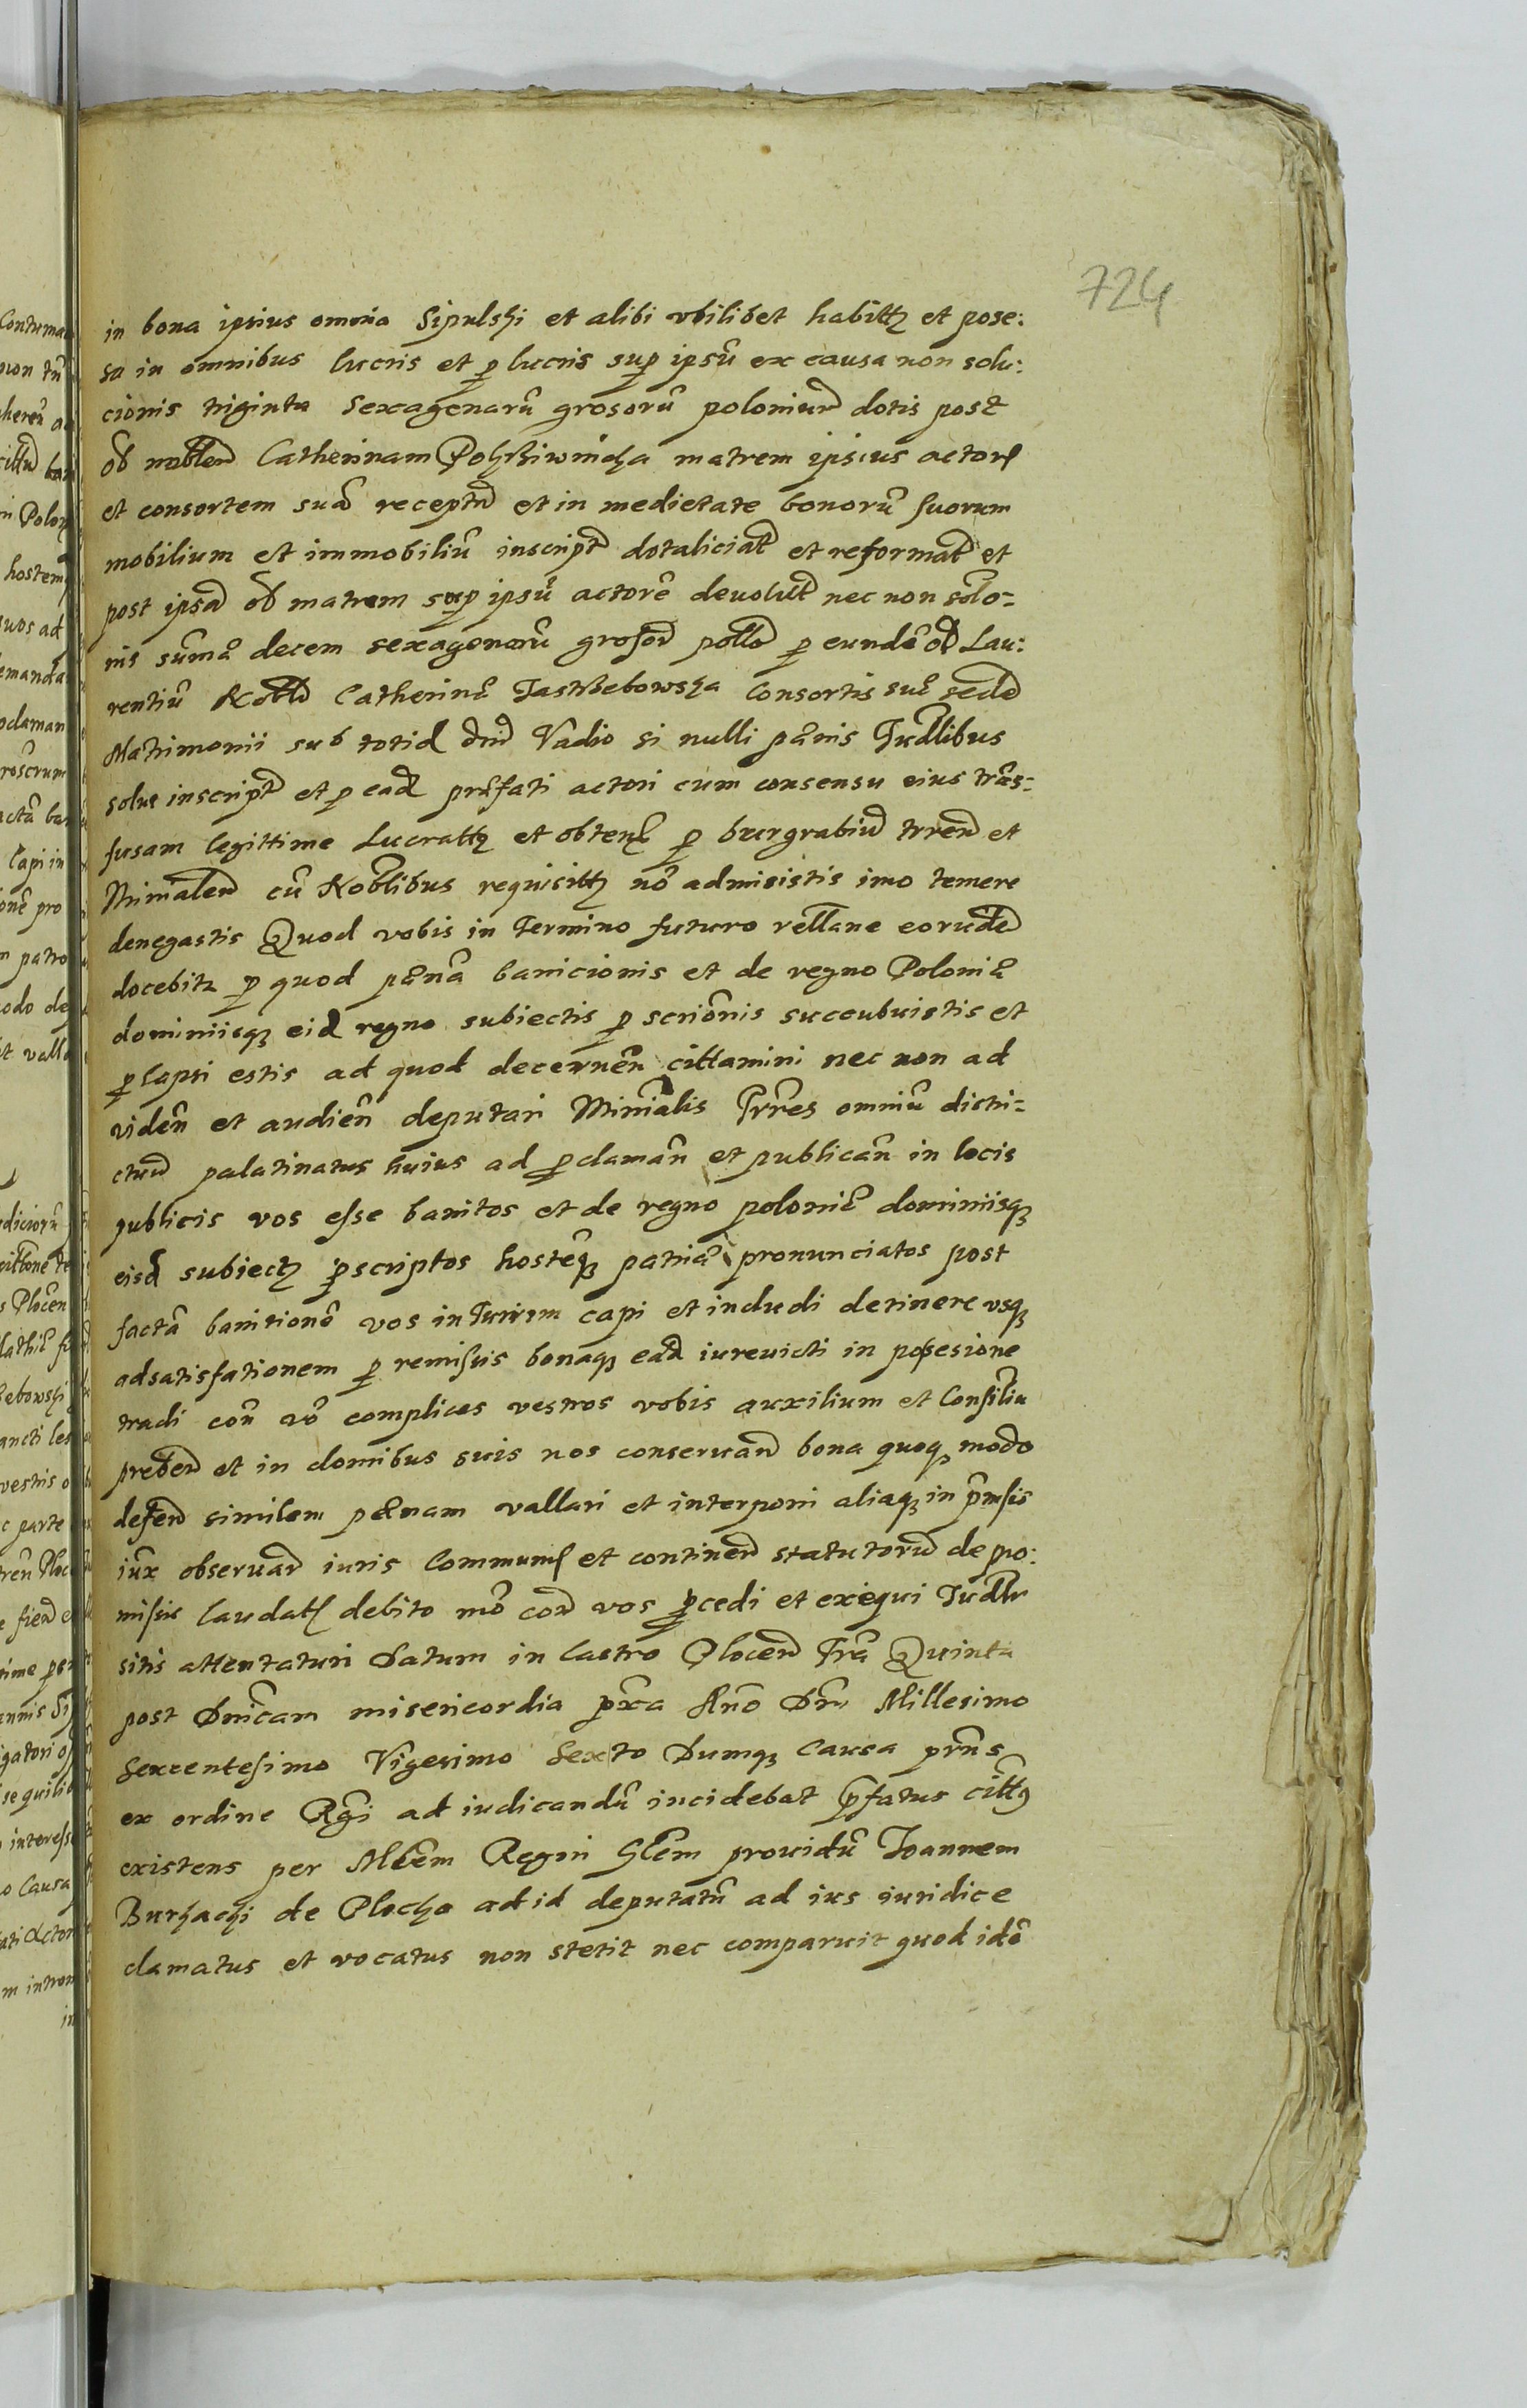 724
in bona ipsius omnia Sipulski et alibi vbilibet habittȝ et pose:
sa in omnibus lucris et ꝑ lucris suꝑ ipsũ ex causa non solu:
cionis triginta Sexagenarũ grosorũ poloniurũ dotis post
oƀ nobllem Catherinam matrem ipsius actorꝭ
et consortem suã receptũ et in medietate bonorũ suorum
mobilium et immobiliũ inscript̃ dotaliciat̃ et reformat̃ et
post ipsã oƀ matrem suꝑ ipsũ actorẽ deuolut̃ nec non
nis sũmã decem sexagenarũ grosorũ pollo ꝑ eundẽ oƀ Lau:
rentiũ Nobllo Catherinæ Jastrzebowska Consortis suæ secũde
Matrimonii sub totid Vadio si nulli pænis Judlibus
solue inscript̃ et ꝑ ead præfati actori cum consensu eius trãs-
fusam legittime Lucrattȝ et obtenꝭ ꝑ burgrabiũ trrenũ et
Minialem cũ Noblibus requisittȝ nõ admisistis imo temere
denegastis Quod vobis in Termino futuro rellane eorũdẽ
docebitꝛ ꝑ quod pænã banicionis et de regno Poloniæ
dominiisqꝫ eid regno subiectis ꝑ scriõnis succubuistis et
ꝑ lapsi estis ad quod decernẽn cittamini nec non ad
vidẽn et audiẽn deputari Minialis Trres omniũ distri-
ctuũ palatinatus huius ad ꝓclamãn et publicãn in locis
publicis vos esse banitos et de regno poloniæ dominiisqꝫ
eisd subiectȝ ꝓscriptos hostẽqꝫ patriæ pronunciatos post
factã banitionẽ vos in Turrim capi et includi detinere vsqꝫ
adsatisfationem ꝑ remissis bonaqꝫ ead iurevicti in possesione
tradi coñ võ complices vestros vobis auxilium et Consiliũ
prebẽn et in domibus suis nos conseruañ bona quoqꝫ modo
defeñ similem pænam vallari et interponi aliaqꝫ in p̃missis
iux̃ obseruañ iuris Communꝭ et contineñ statutorũ de pro:
missis laudatꝭ debito mõ coñ vos ꝓcedi et exiequi Judlr
sitis attentaturi Datum in Castro Plocen̄ Fr̃a Quinta
post Dnicam misericordia ꝓxa Anõ Dni Millesimo
Sexcentesimo Vigesimo Sexto Dumqꝫ Causa prñs
ex ordine Rgri ad iudicandũ incidebat p̃fatus citttȝ
existens per Mlem Regni Glem prouidũ Joannem
Burkacki de Plocko ad id deputatũ ad ius iuridice
clamatus et vocatus non stetit nec comparuit quod idẽ